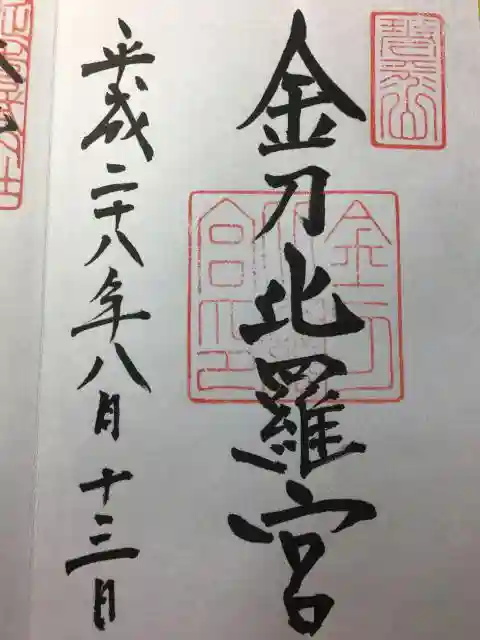 金刀比羅宮
平成二十八年八月十三日